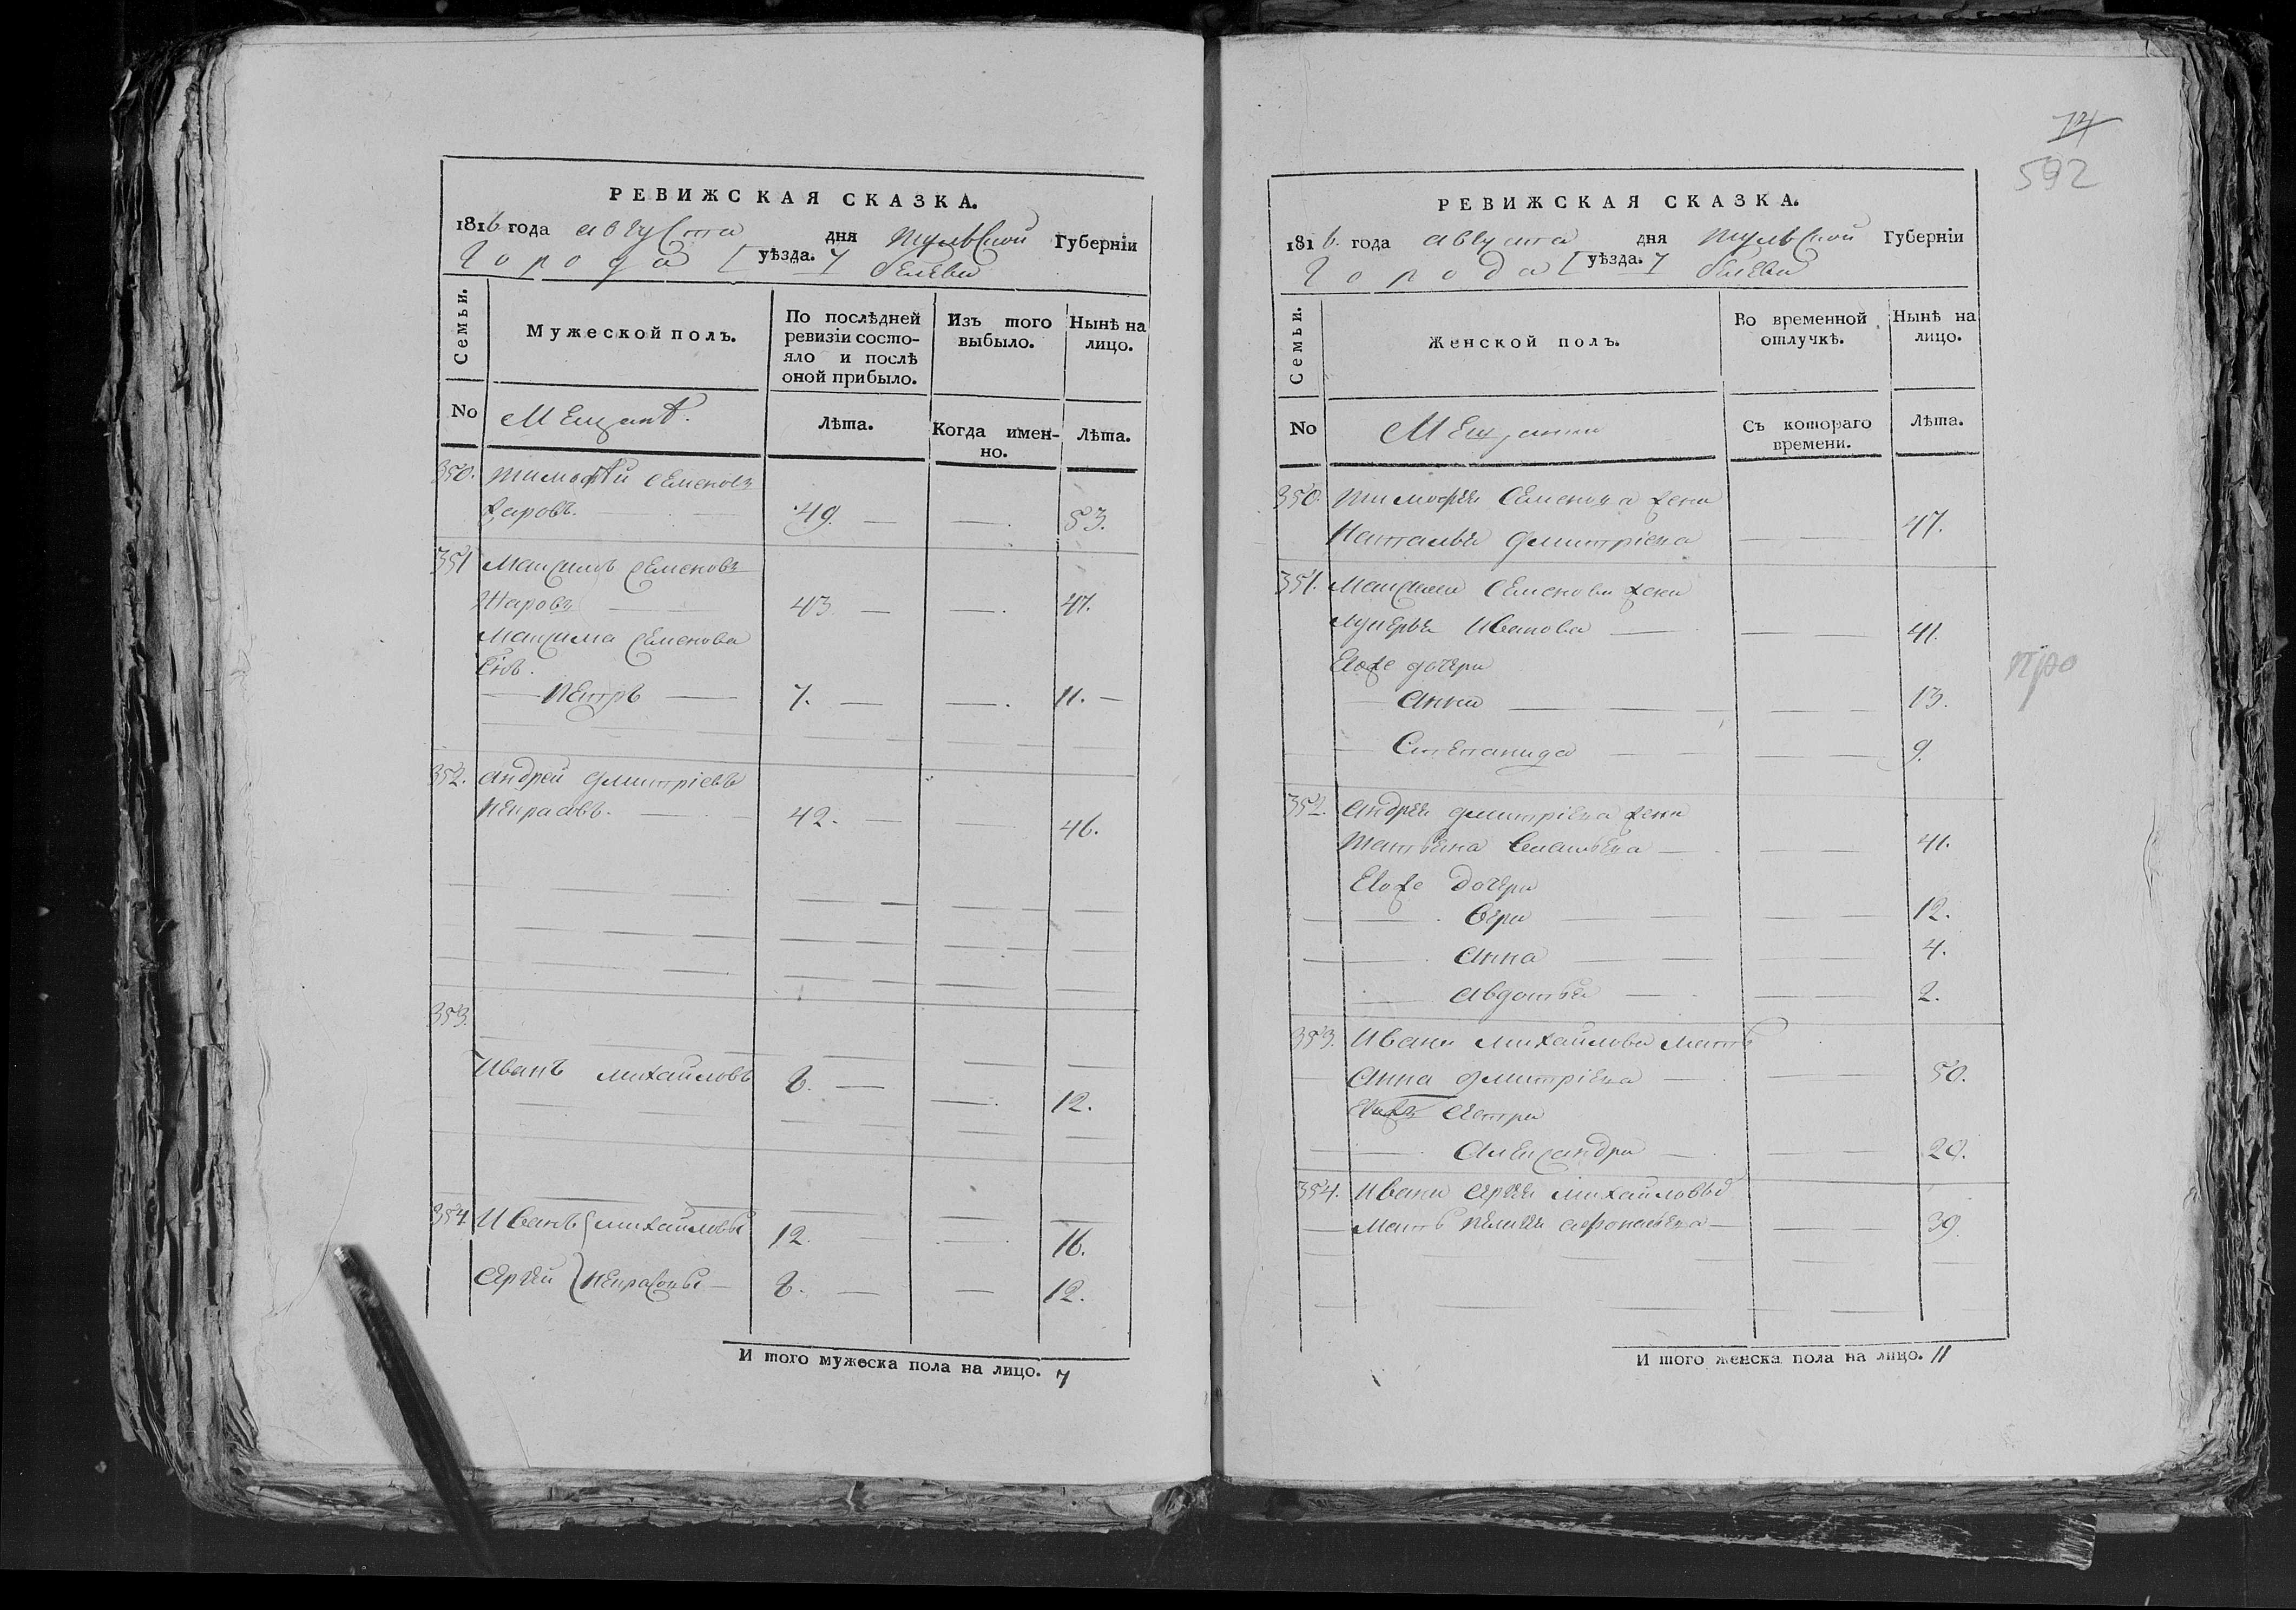 РЕВИЖСКАЯ СКАЗКА.
1816 года августа дня Тульской Губерніи
Города [уѣзда.] белева
Семьи.
Мужеской полъ.
По послѣдней ревизіи состо-
яло и послѣ
оной прибыло.
Изъ того выбыло.
Нынѣ на лицо.
No
Мещанъ.
Лѣта.
Когда имен-
но.
Лѣта.
350. Тимофѣй Семеновъ
Жаровъ. 49. 53.
351 Максимъ Семеновъ
Жаровъ 43 47.
Максима Семенова
Петръ 7. 11.
352. Андрей Дмитріевъ
Некрасовъ. 42. 46.
353.
Иванъ Михайловъ 8. 12.
354 Иванъ Михайловы 12. 16.
Сергѣй Некрасовы 8. 12.
И того мужеска пола на лицо. 7
74
592
РЕВИЖСКАЯ СКАЗКА.
1816. года августа дня Тульской Губерніи
Города [уѣзда.] белева
Семьи.
Женской полъ.
Во временной отлучкѣ.
Нынѣ на лицо.
No
Мещанки
Съ котораго времени.
Лѣта.
350. Тимофея Семенова жена
Наталья Дмитріева 47.
351. Максима Семенова жена
Лукерья Иванова 41.
Ево же дочери
Анна 13.
Степанида 9.
про
352. Андрея Дмитріева жена
Татьяна 41.
Ево же дочери
Вера 12.
Анна 4.
Авдотья 2.
353. Ивана Михайлова мать
Анна Дмитріева 50.
сестра
Александра 20.
354. Ивана Сергѣя Михайловыхъ
Мать Пелагея Афонасьева 39.
И того женска пола на лицо. 11